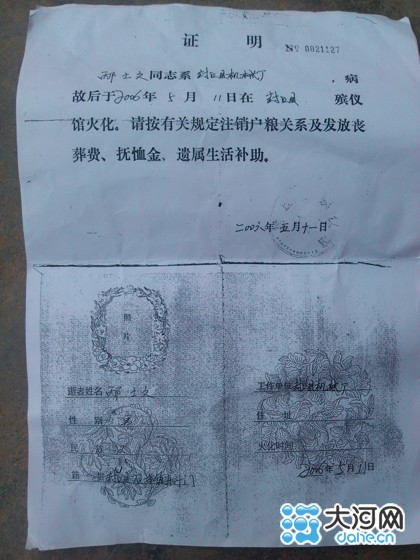 证 明
No 0021127
邢士文同志系 封丘县机械厂 ，病
故后于2006年 5月 11日在 封丘县 殡仪
馆火化。请按有关规定注销户粮关系及发放丧
葬费、抚恤金、遗属生活补助。
二00六年五月十一日
照
片
逝者姓名 邢士文
性 别
民 族 汉
工作单位 封丘县机械厂
住 址
火化时间
2006年5月11日
大河网
dahe.cn